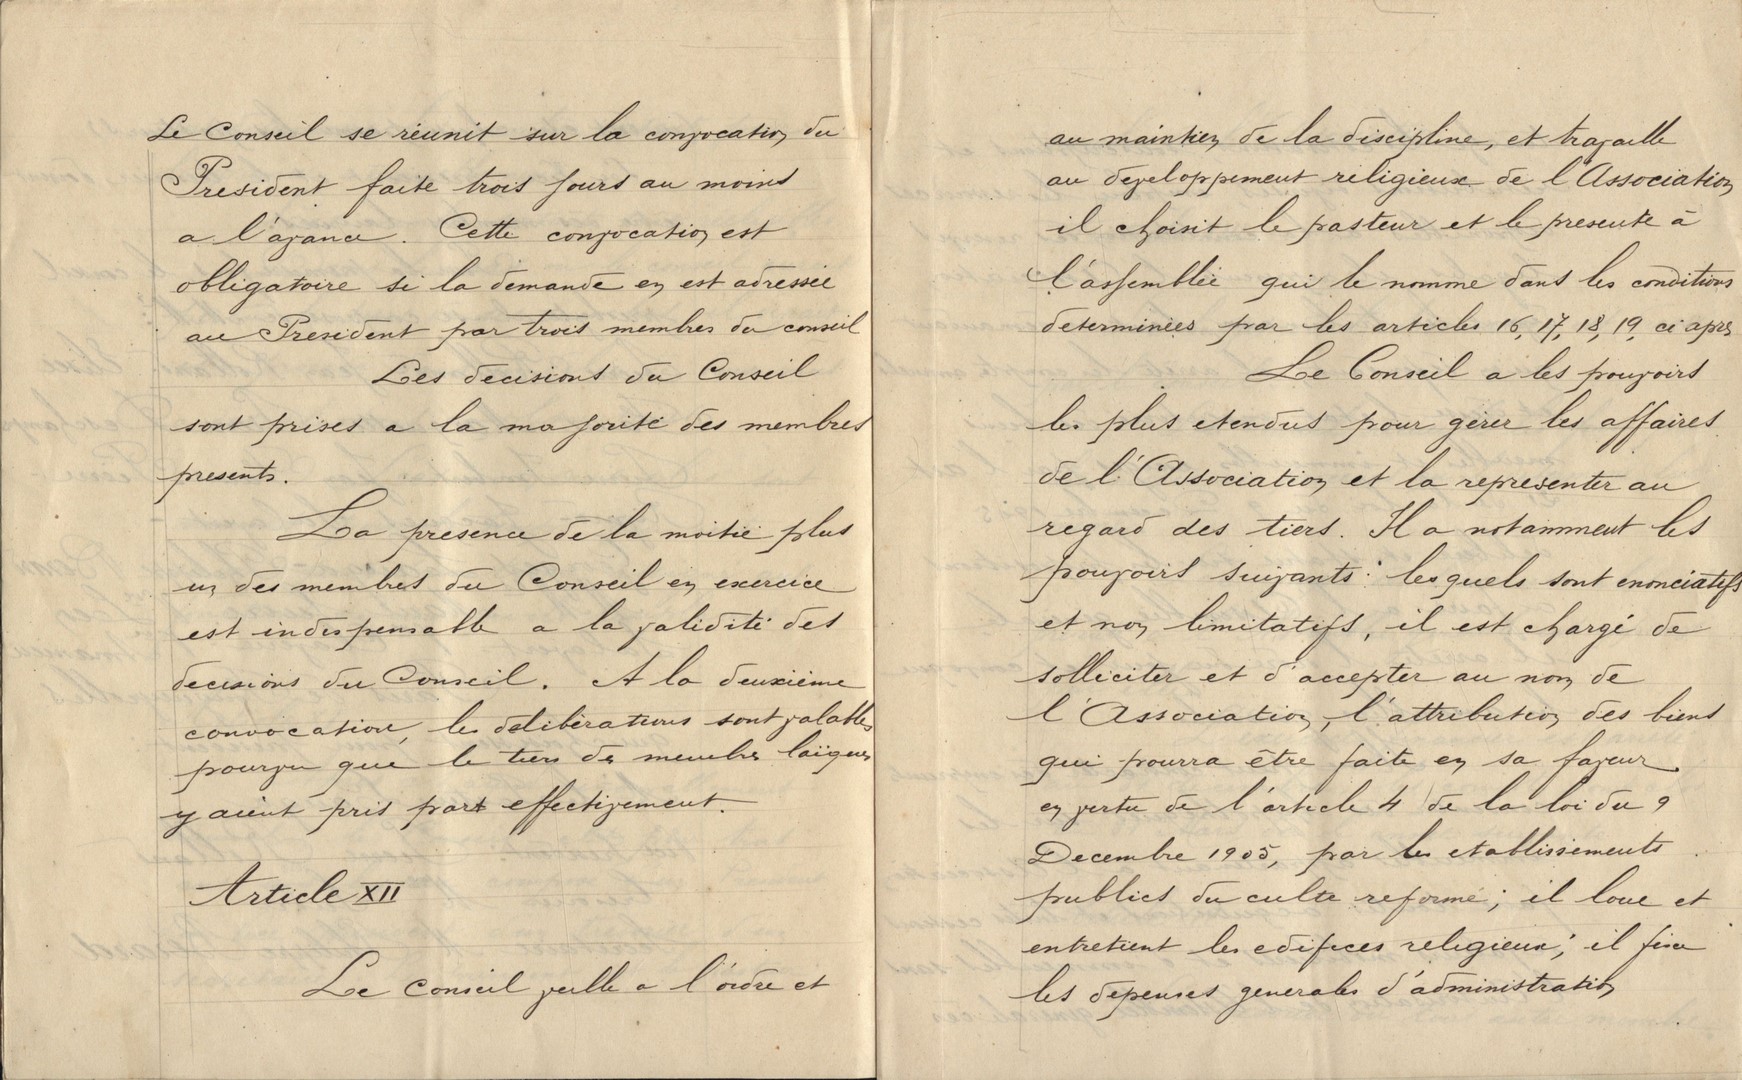 Le Conseil se réunit sur la convocation du
President faite trois jours au moins
a l'avance. Cette convocation est
obligatoire si la demande en est adressée
au President par trois membres du conseil
Les decisions du Conseil
sont prises a la majorité des membres
presents.
La presence de la moitié plus
un des membres du Conseil en exercice
est indispensable a la validité des
decisions du Conseil. A la deuxième
convocation, les deliberations sont valables
pourvu que le tiers des membres laïques
y aient pris part effectivement.
Article XII
Le Conseil veille a l'ordre et
au maintien de la discipline, et travaille
au developpement religieux de l'Association
il choisit le pasteur et le presente à
l'assemblée qui le nomme dans les conditions
determinées par les articles 16, 17, 18, 19, ci apres
Le Conseil a les pouvoirs
les plus etendus pour gérer les affaires
de l'Association et la representer au
regard des tiers. Il a notamment les
pouvoirs suivants: lesquels sont enonciatifs
et non limitatifs, il est chargé de
solliciter et d'accepter au nom de
l'Association, l'attribution des biens
qui pourra être faite en sa faveur
en vertu de l'article 4 de la loi du 9
Decembre 1905, par les etablissements
publics du culte reformé; il loue et
entretient les edifices religieux; il fixe
les depenses generales d'administration